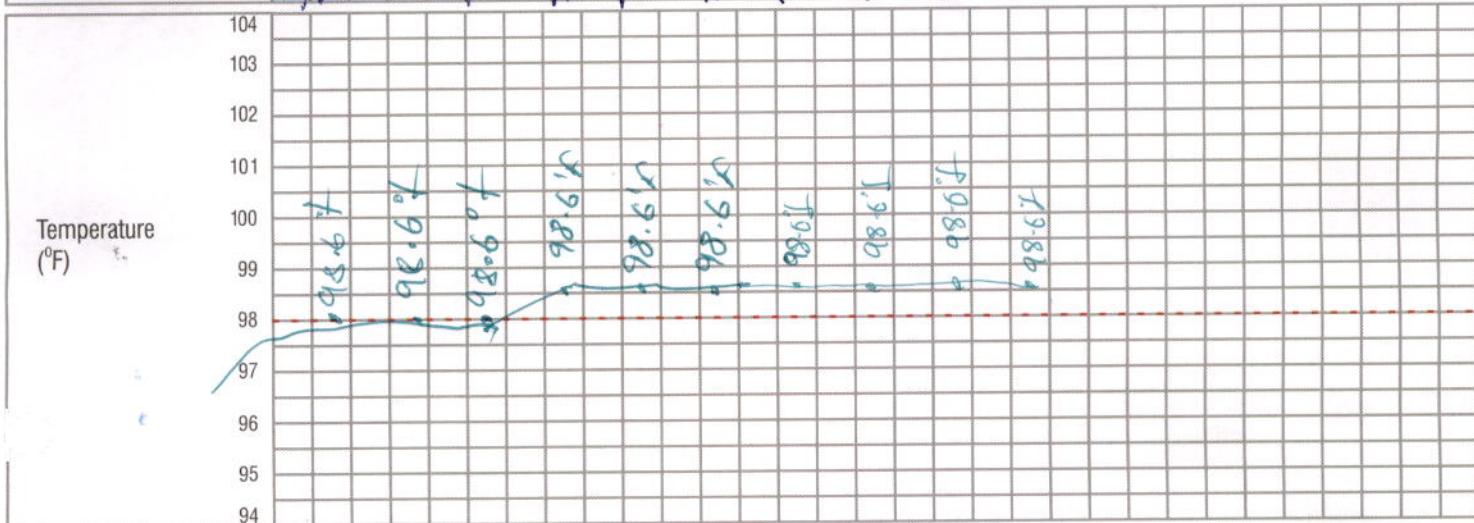 104
103
102
101
100
99
98
97
96
95
94
Temperature
(°F)
98.6°f
98.6°f
98.6°f
98.6'F
98.6'F
98.6'F
98.6
98.6
98.6
98.6